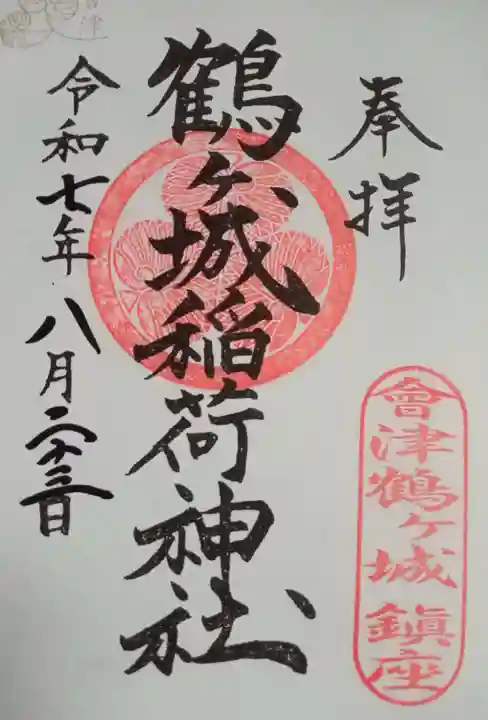 奉拝
會津鶴ヶ城鎮座
鶴ヶ城稲荷神社
令和七年八月二十三日